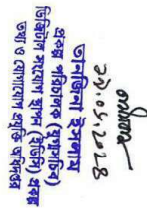 তানজিনা ইসলাম
প্রকল্প পরিচালক (যুগ্মসচিব)
ডিজিটাল সংযোগ স্থাপন (ইডিসি) প্রকল্প
তথ্য ও যোগাযোগ প্রযুক্তি অধিদপ্তর